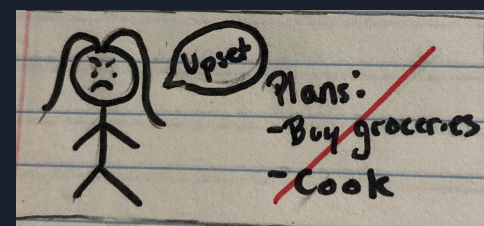 Upset
Plans:
-Buy groceries
-Cook